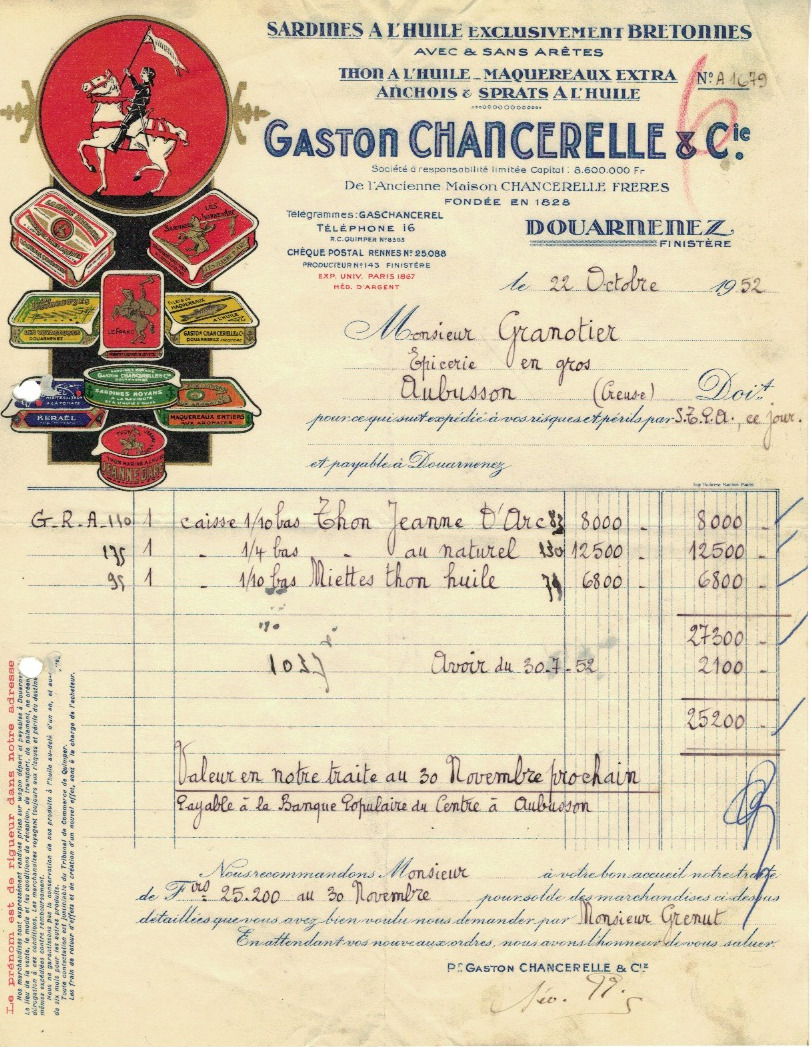 SARDINES A L'HUILE EXCLUSIVEMENT BRETONNES
AVEC & SANS ARÊTES
THON A L'HUILE _ MAQUEREAUX EXTRA
ANCHOIS & SPRATS A L'HUILE
N° A 1679
GASTON CHANCERELLE & Cie.
Société à responsabilité limitée Capital : 8.600.000 Fr
De l'Ancienne Maison CHANCERELLE FRERES
FONDÉE EN 1828
Télégrammes: GASCHANCEREL
TÉLÉPHONE 16
R.C. QUIMPER N° 8303
CHÈQUE POSTAL RENNES N° 25.088
PRODUCTEUR N° 143 FINISTÈRE
EXP. UNIV. PARIS 1867
MÉD. D'ARGENT
DOUARNENEZ
FINISTÈRE
le 22 Octobre 1952
Monsieur Granotier
Epicerie en gros
Aubusson (Creuse) Doit
pour ce qui suit expédié à vos risques et périls par S.T.P.A., ce jour.
et payable à Douarnenez
GASTON CHANCERELLE & Cie
DOUARNENEZ
SARDINES ROYANS
KERAËL
MAQUEREAUX ENTIERS
AUX AROMATES
JEANNE D'ARC
G_R_A_110 1 caisse 1/10 bas Thon Jeanne D'Arc 83 8000 - 8000 -
175 1 - 1/4 bas - au naturel 130 12500 - 12500 -
95 1 - 1/10 bas Miettes thon huile 71 6800 - 6800 -
27300 -
Avoir du 30-7-52 2100 -
25200 -
Valeur en notre traite au 30 Novembre prochain
Payable à la Banque Populaire du Centre à Aubusson
Nous recommandons Monsieur à votre bon accueil notre traite
de Frs 25.200 au 30 Novembre pour solde des marchandises ci-dessus
détaillées que vous avez bien voulu nous demander par Monsieur Grenut
En attendant vos nouveaux ordres, nous avons l'honneur de vous saluer.
Pr GASTON CHANCERELLE & Cie
Le prénom est de rigueur dans notre adresse
Nous ne garantissons pas la conservation de nos produits à l'huile au-delà d'un an, et au-
de six mois pour les autres produits.
Toute contestation est justiciable du Tribunal de Commerce de Quimper.
Les frais de retour d'effets et de création d'un nouvel effet, sont à la charge de l'acheteur.